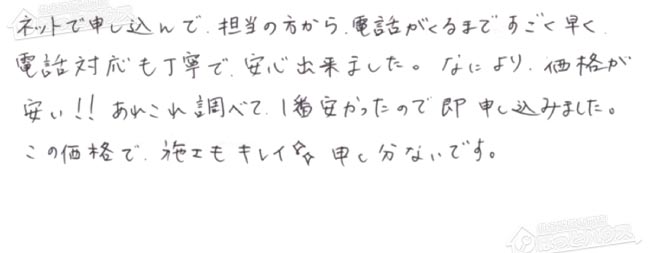 ネットで申し込んで、担当の方から、電話がくるまですごく早く、
電話対応も丁寧で、安心出来ました。なにより、価格が
安い!! あれこれ調べて、1番安かったので即申し込みました。
この価格で、施工もキレイ✨ 申し分ないです。